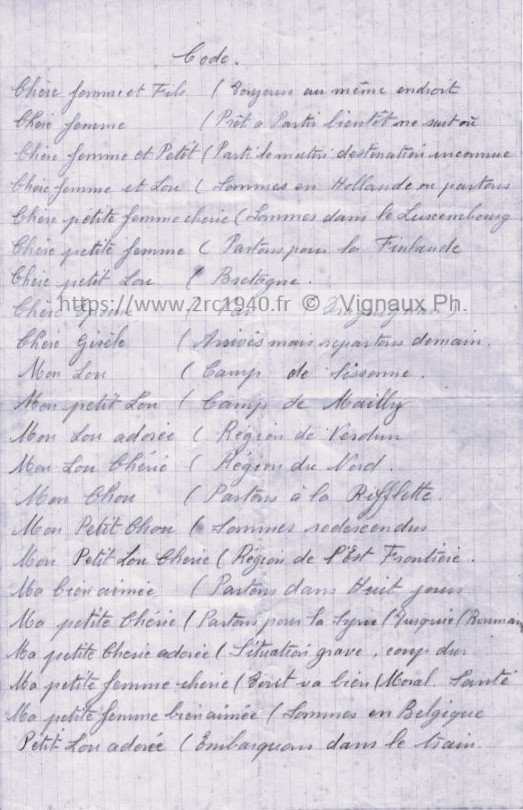 Code.
Chère femme et Fils ( Toujours au même endroit
Chère femme ( Prêt a Partir bientôt ne sait où
Chère femme et Petit ( Parti le matin destination inconnue
Chère femme et Lou ( Sommes en Hollande ou partons
Chère petite femme chérie ( Sommes dans le Luxembourg
Chère petite femme ( Partons pour la Finlande
Chère petit Lou ( Bretagne.
https://www.2rc1940.fr © Vignaux Ph.
Chère
Chère Gisèle ( Arrivés mais repartons demain.
Mon Lou ( Camp de Sissonne.
Mon petit Lou ( Camp de Mailly
Mon Lou adorée ( Région de Verdun
Mon Lou Chérie ( Région du Nord.
Mon Chou ( Partons à la Rifflette.
Mon Petit Chou ( Sommes redescendus
Mon Petit Lou Cherie ( Région de l'Est Frontière.
Ma bien aimée ( Partons dans Huit jours
Ma petite Chérie ( Partons pour la Syrie ( Turquie ( Rouman
Ma petite Cherie adorée ( Situation grave, coup dur
Ma petite femme cherie ( Tout va bien ( Moral Santé
Ma petite femme bien aimée ( Sommes en Belgique
Petit Lou adorée ( Embarquons dans le train.